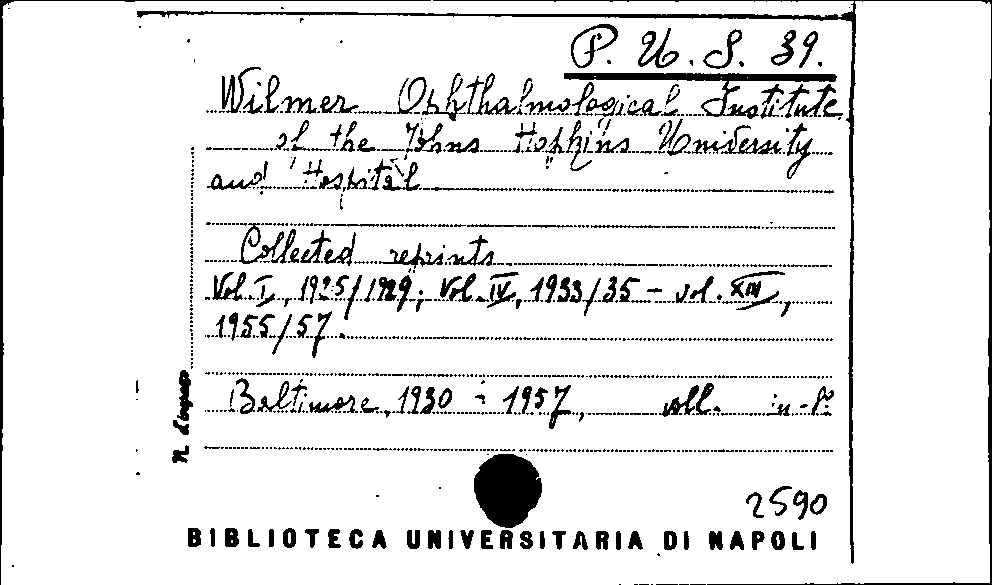 P. U. S. 39.
Wilmer Ophthalmological Institute
of the Johns Hopkins University
and Hospital
Collected reprints.
Vol. I, 1925/1929; Vol. IV, 1933/35 - vol. XIII,
1955/57.
Baltimore, 1930 - 1957, voll. in-8°
N. d'ingresso
2590
BIBLIOTECA UNIVERSITARIA DI NAPOLI